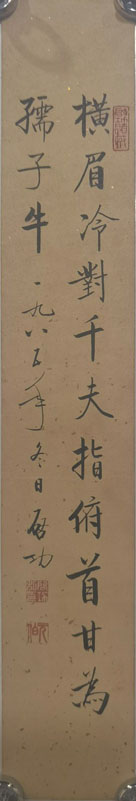 橫眉冷對千夫指俯首甘為
孺子牛 一九八五年冬日 啟功